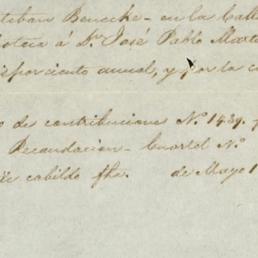 steban Benecke - en la Calle
poteca á Dn José Pablo Marte
is por ciento anual, y por la c
o de contribuciones Nº 1439.
Recaudacion - Cuartel Nº
de cabildo fha. de Mayo 1